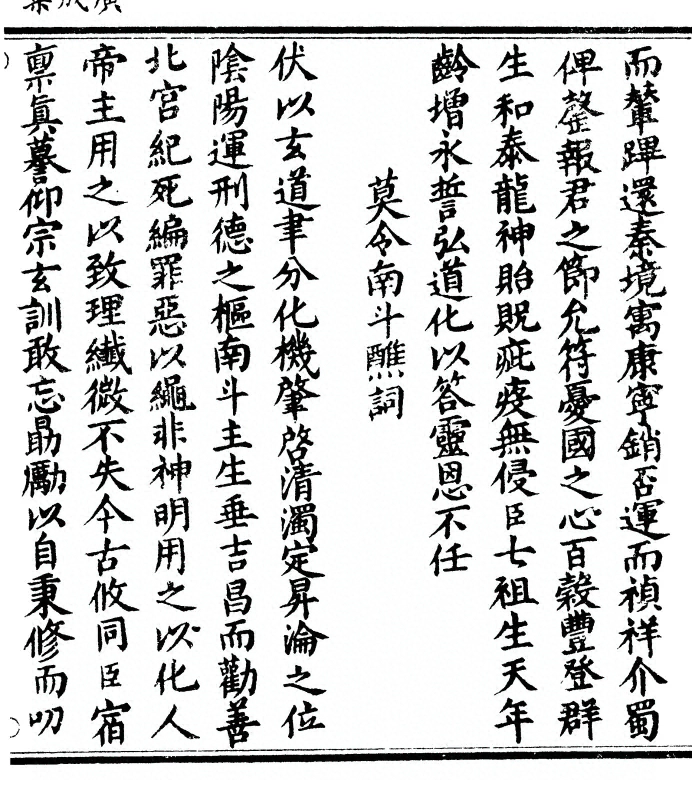 而輦蹕還秦境寓康寧銷否運而禎祥介蜀
俾罄報君之節允符憂國之心百穀豐登群
生和泰龍神貽貺疵癘無侵臣七祖生天年
齡增永誓弘道化以答靈恩不任
莫令南斗醮詞
伏以玄道聿分化機肇啓清濁定昇淪之位
陰陽運刑德之樞南斗主生垂吉昌而勸善
北宮紀死編罪惡以繩非神明用之以化人
帝主用之以致理纖微不失今古攸同臣宿
稟真䕫仰宗玄訓敢忘勗勵以自秉修而叨